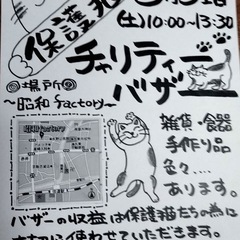 保護
(土)10:00〜13:30
チャリティー
バザー
◎場所◎
〜昭和factory〜
昭和factory
雑貨・食器
手作り品
色々...
あります。
バザーの収益は保護猫たちの為に
大切に使わせていただきます。